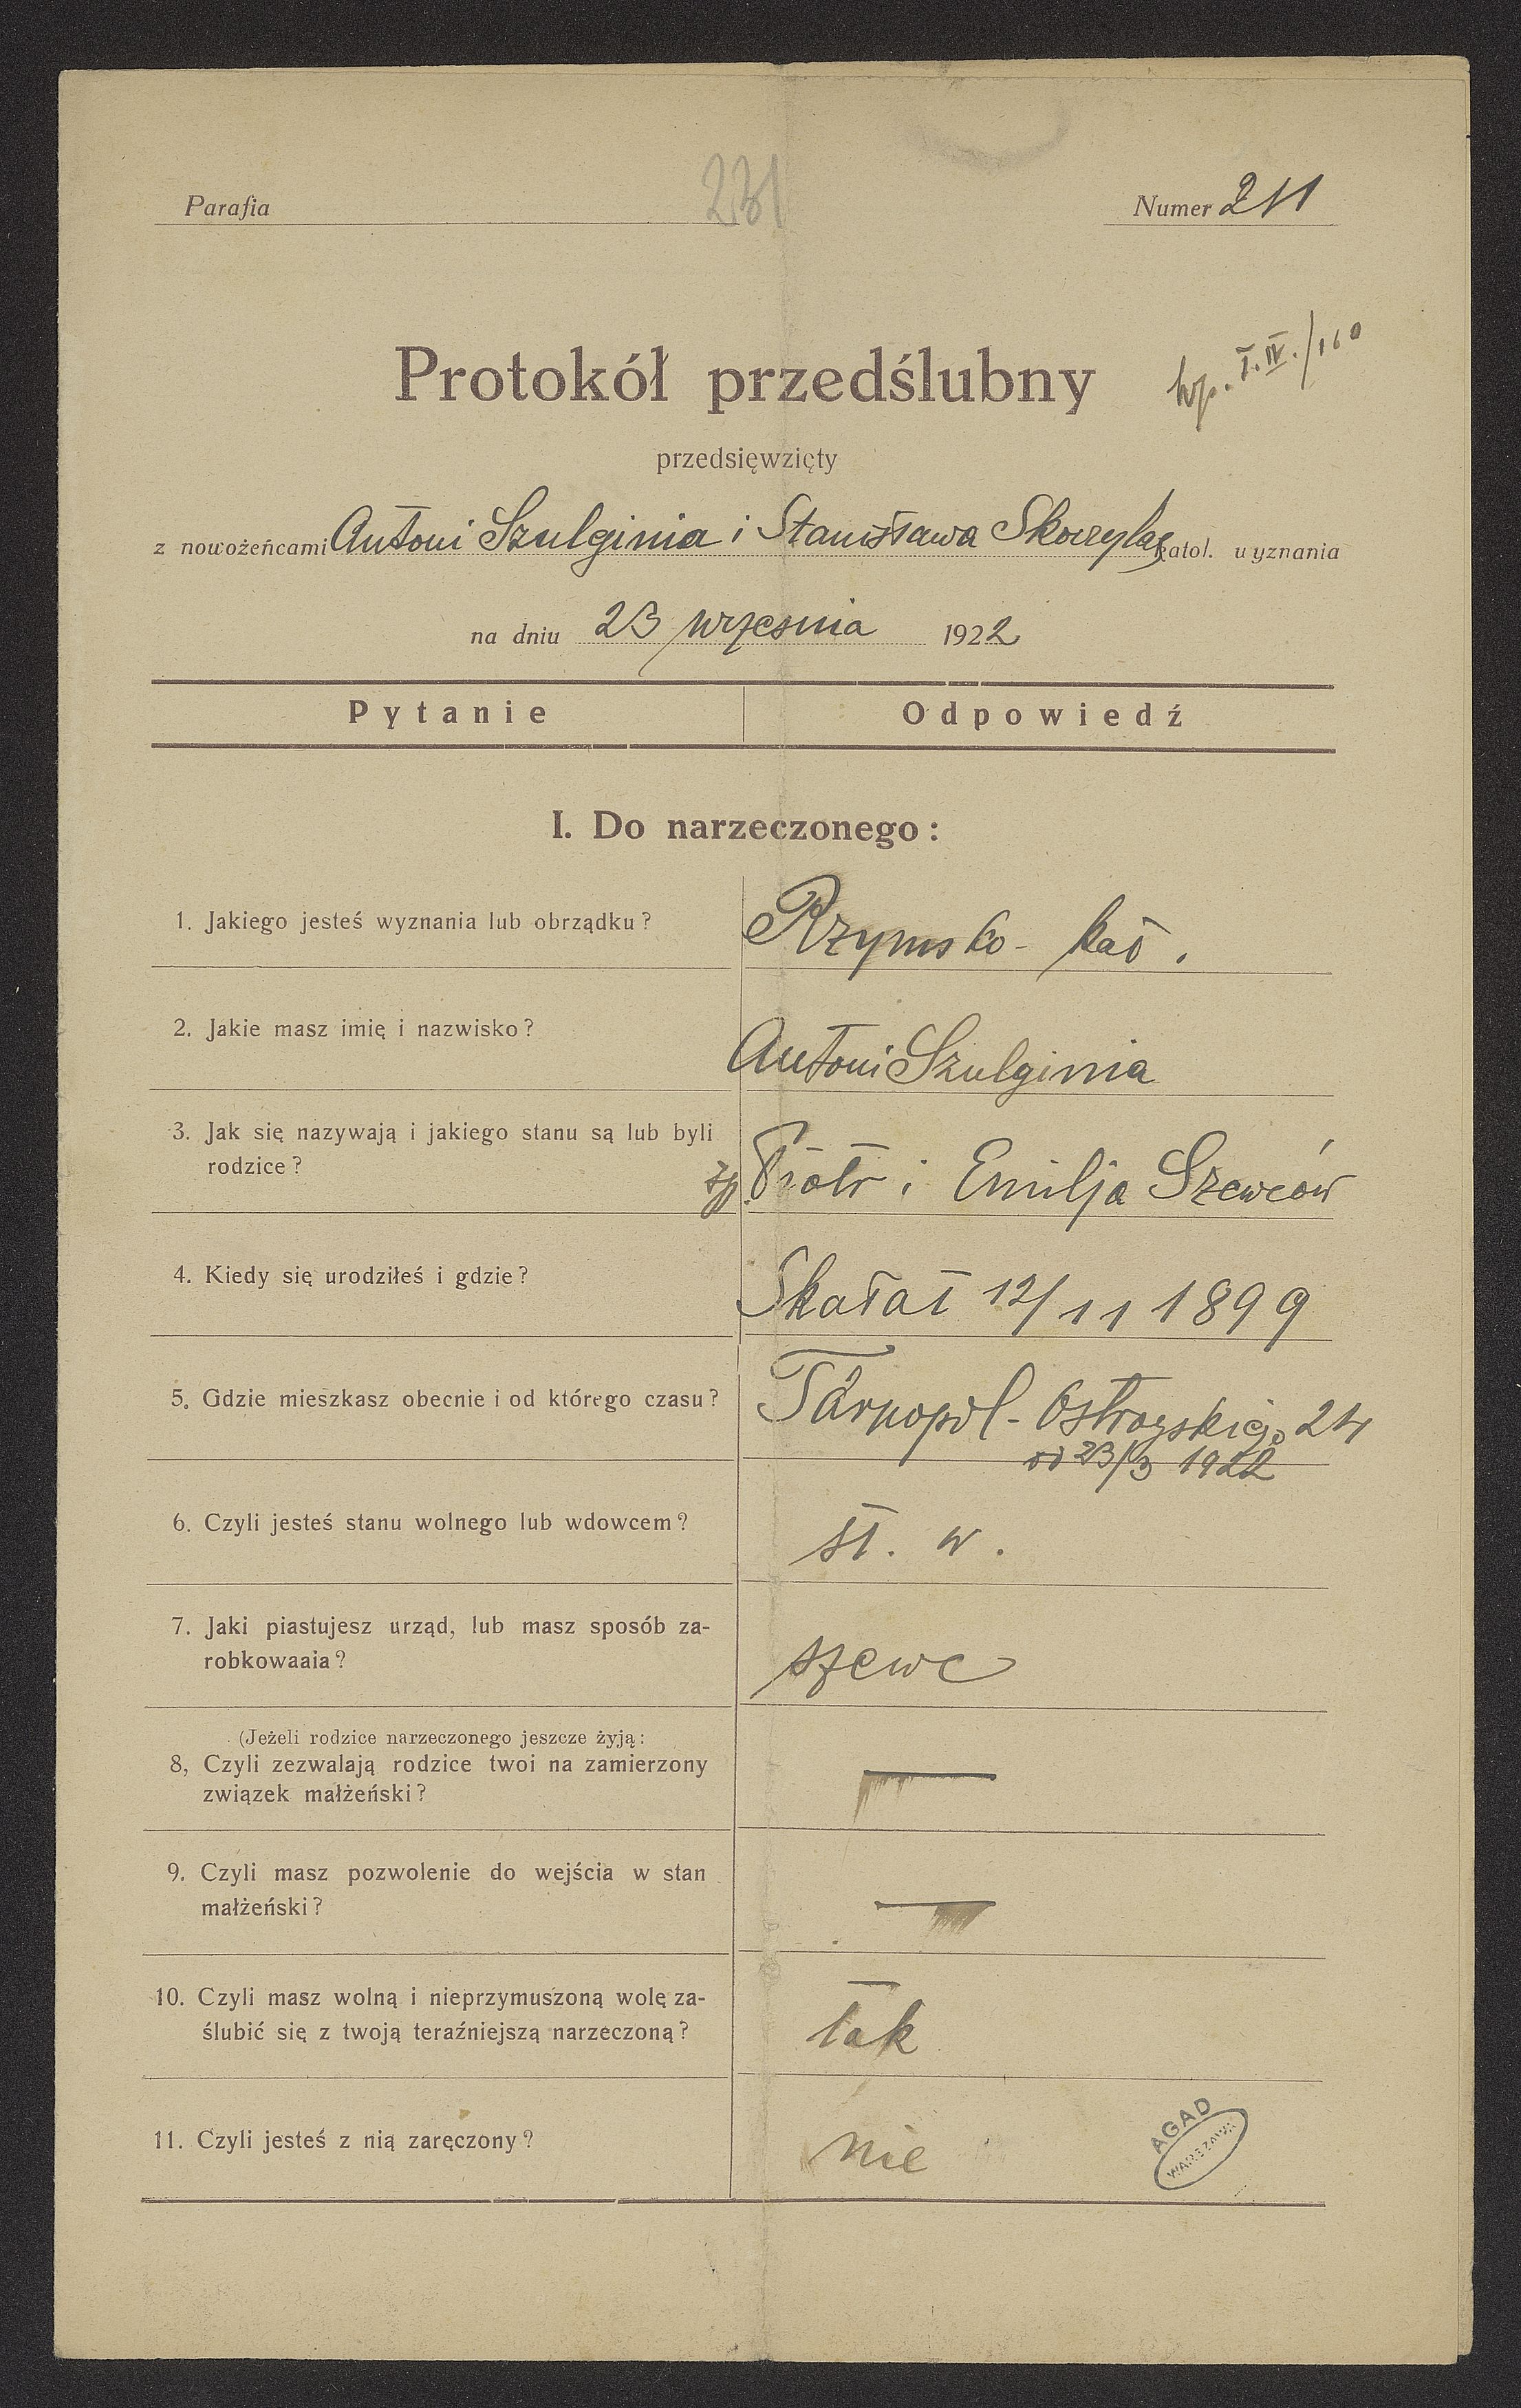 231
Parafia
Numer 211
wp. T. IV./160
Protokół przedślubny
przedsięwzięty
z nowożeńcami Antoni Szulginia i Stanisława katol. wyznania
na dniu 23 września 1922
Pytanie
Odpowiedź
I. Do narzeczonego:
1. Jakiego jesteś wyznania lub obrządku?
Rzymsko-kat.
2. Jakie masz imię i nazwisko?
Antoni Szulginia
3. Jak się nazywają i jakiego stanu są lub byli
rodzice?
Piotr i Emilja Szewców
4. Kiedy się urodziłeś i gdzie?
Skałat 12/11 1899
5. Gdzie mieszkasz obecnie i od którego czasu?
Tarnopol - Ostrogskiego 24
od 23/3 1922
6. Czyli jesteś stanu wolnego lub wdowcem?
st. w.
7. Jaki piastujesz urząd, lub masz sposób za-
robkowaaia?
szewc
(Jeżeli rodzice narzeczonego jeszcze żyją:
8, Czyli zezwalają rodzice twoi na zamierzony
związek małżeński?
—
9. Czyli masz pozwolenie do wejścia w stan
małżeński?
—
10. Czyli masz wolną i nieprzymuszoną wolę za-
ślubić się z twoją teraźniejszą narzeczoną?
tak
11. Czyli jesteś z nią zaręczony?
nie
AGAD
WARSZAWA